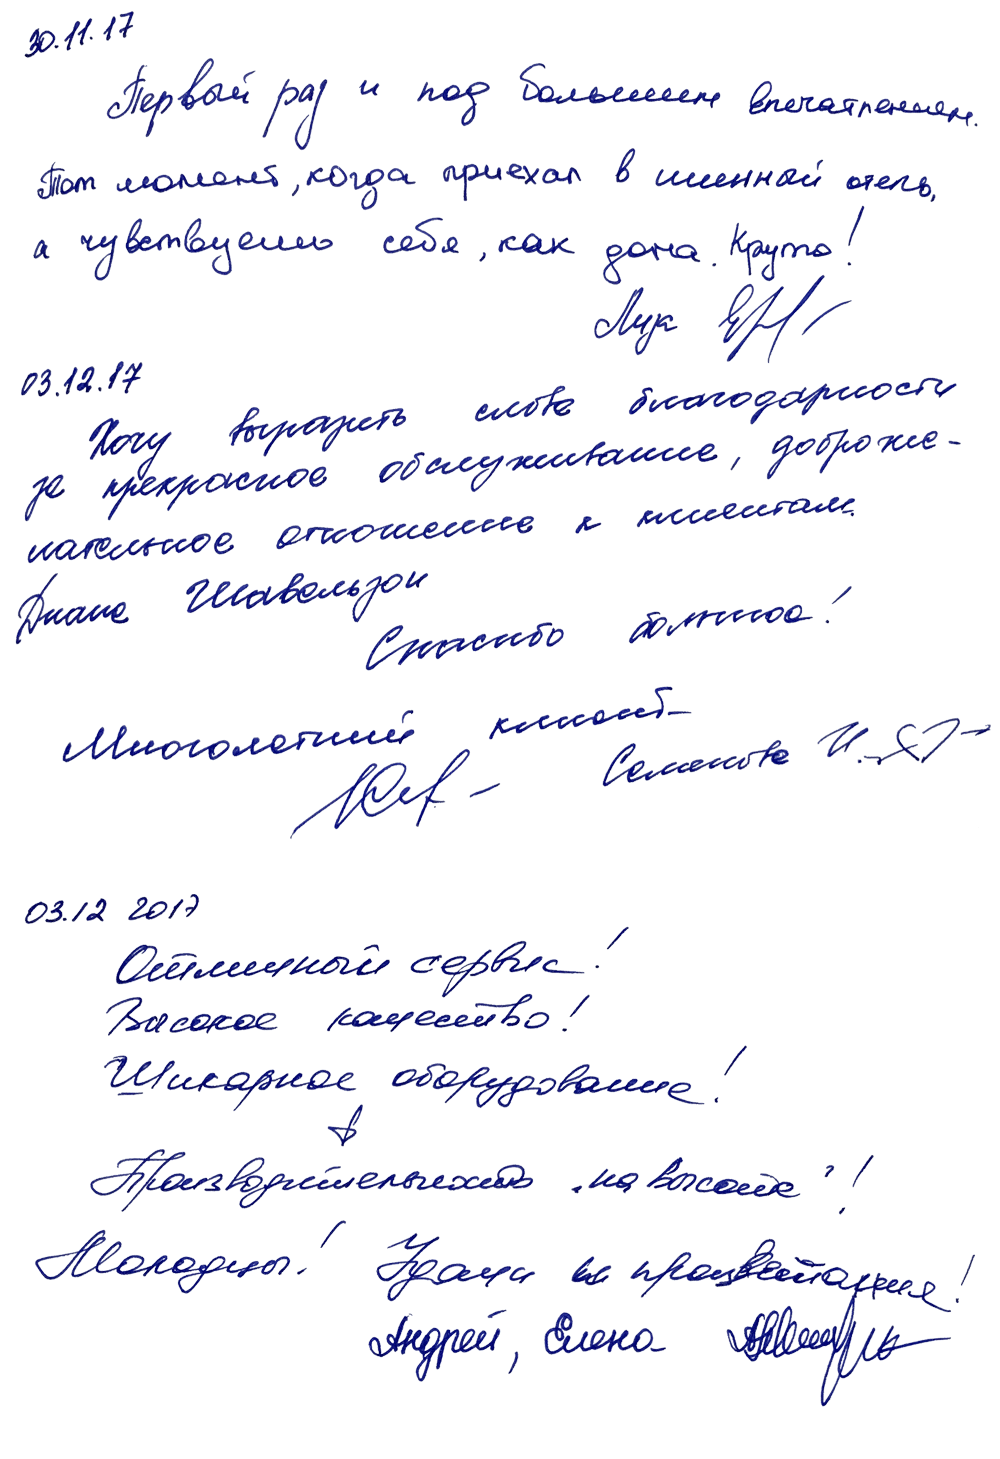 30.11.17
Первый раз и под большим впечатлением.
Тот момент, когда приехал в шинный отель,
а чувствуешь себя, как дома. Круто!
03.12.17
Хочу выразить слова благодарности
за прекрасное обслуживание, доброже-
лательное отношение к клиентам.
Диане Шавельзон
Спасибо большое!
Многолетний клиент
Семенова И.
03.12 2017
Отличный сервис!
Высокое качество!
Шикарное оборудование!
Производительность "на высоте"!
Молодцы! Удачи и процветания!
Андрей, Елена